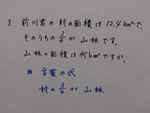 3. 前川君の村の面積は12.4km²で、
そのうちの が山林です。
山林の面積は何km²ですか。
言葉の式
村の が 山林